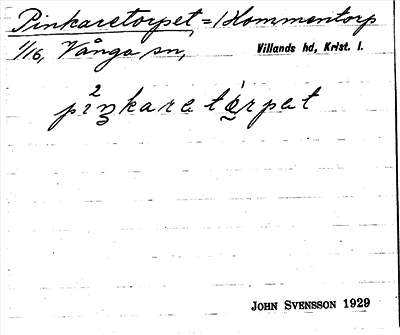 Pinkaretorpet = 1 Kommentorp
1/16, Vånga sn, Villands hd, Krist. l.
pi²ŋkaretǫ́rpet
JOHN SVENSSON 1929